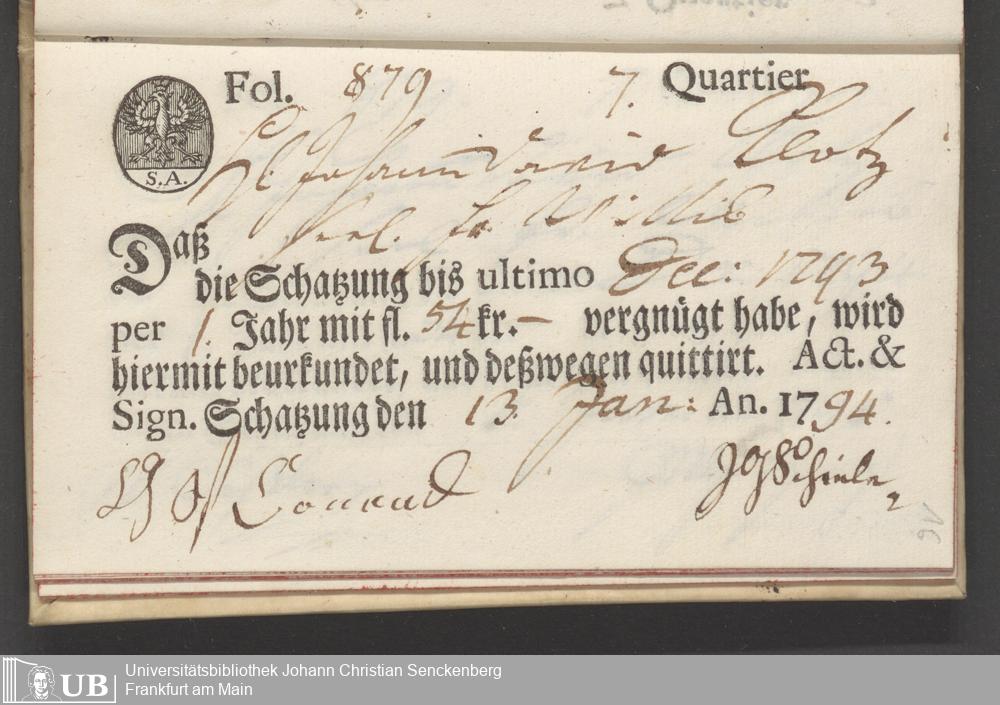 Fol. 879. 7. Quartier
S.A.
H. Johann David Clotz
seel. fr. Wittib
Daß
die Schatzung bis ultimo Dec: 1793
per 1. Jahr mit fl. 54 kr. – vergnügt habe, wird
hiermit beurkundet, und deßwegen quittirt. Act. &
Sign. Schatzung den 13. Jan: An. 1794.
Conrad
JGSchiele
16
UB
Universitätsbibliothek Johann Christian Senckenberg
Frankfurt am Main